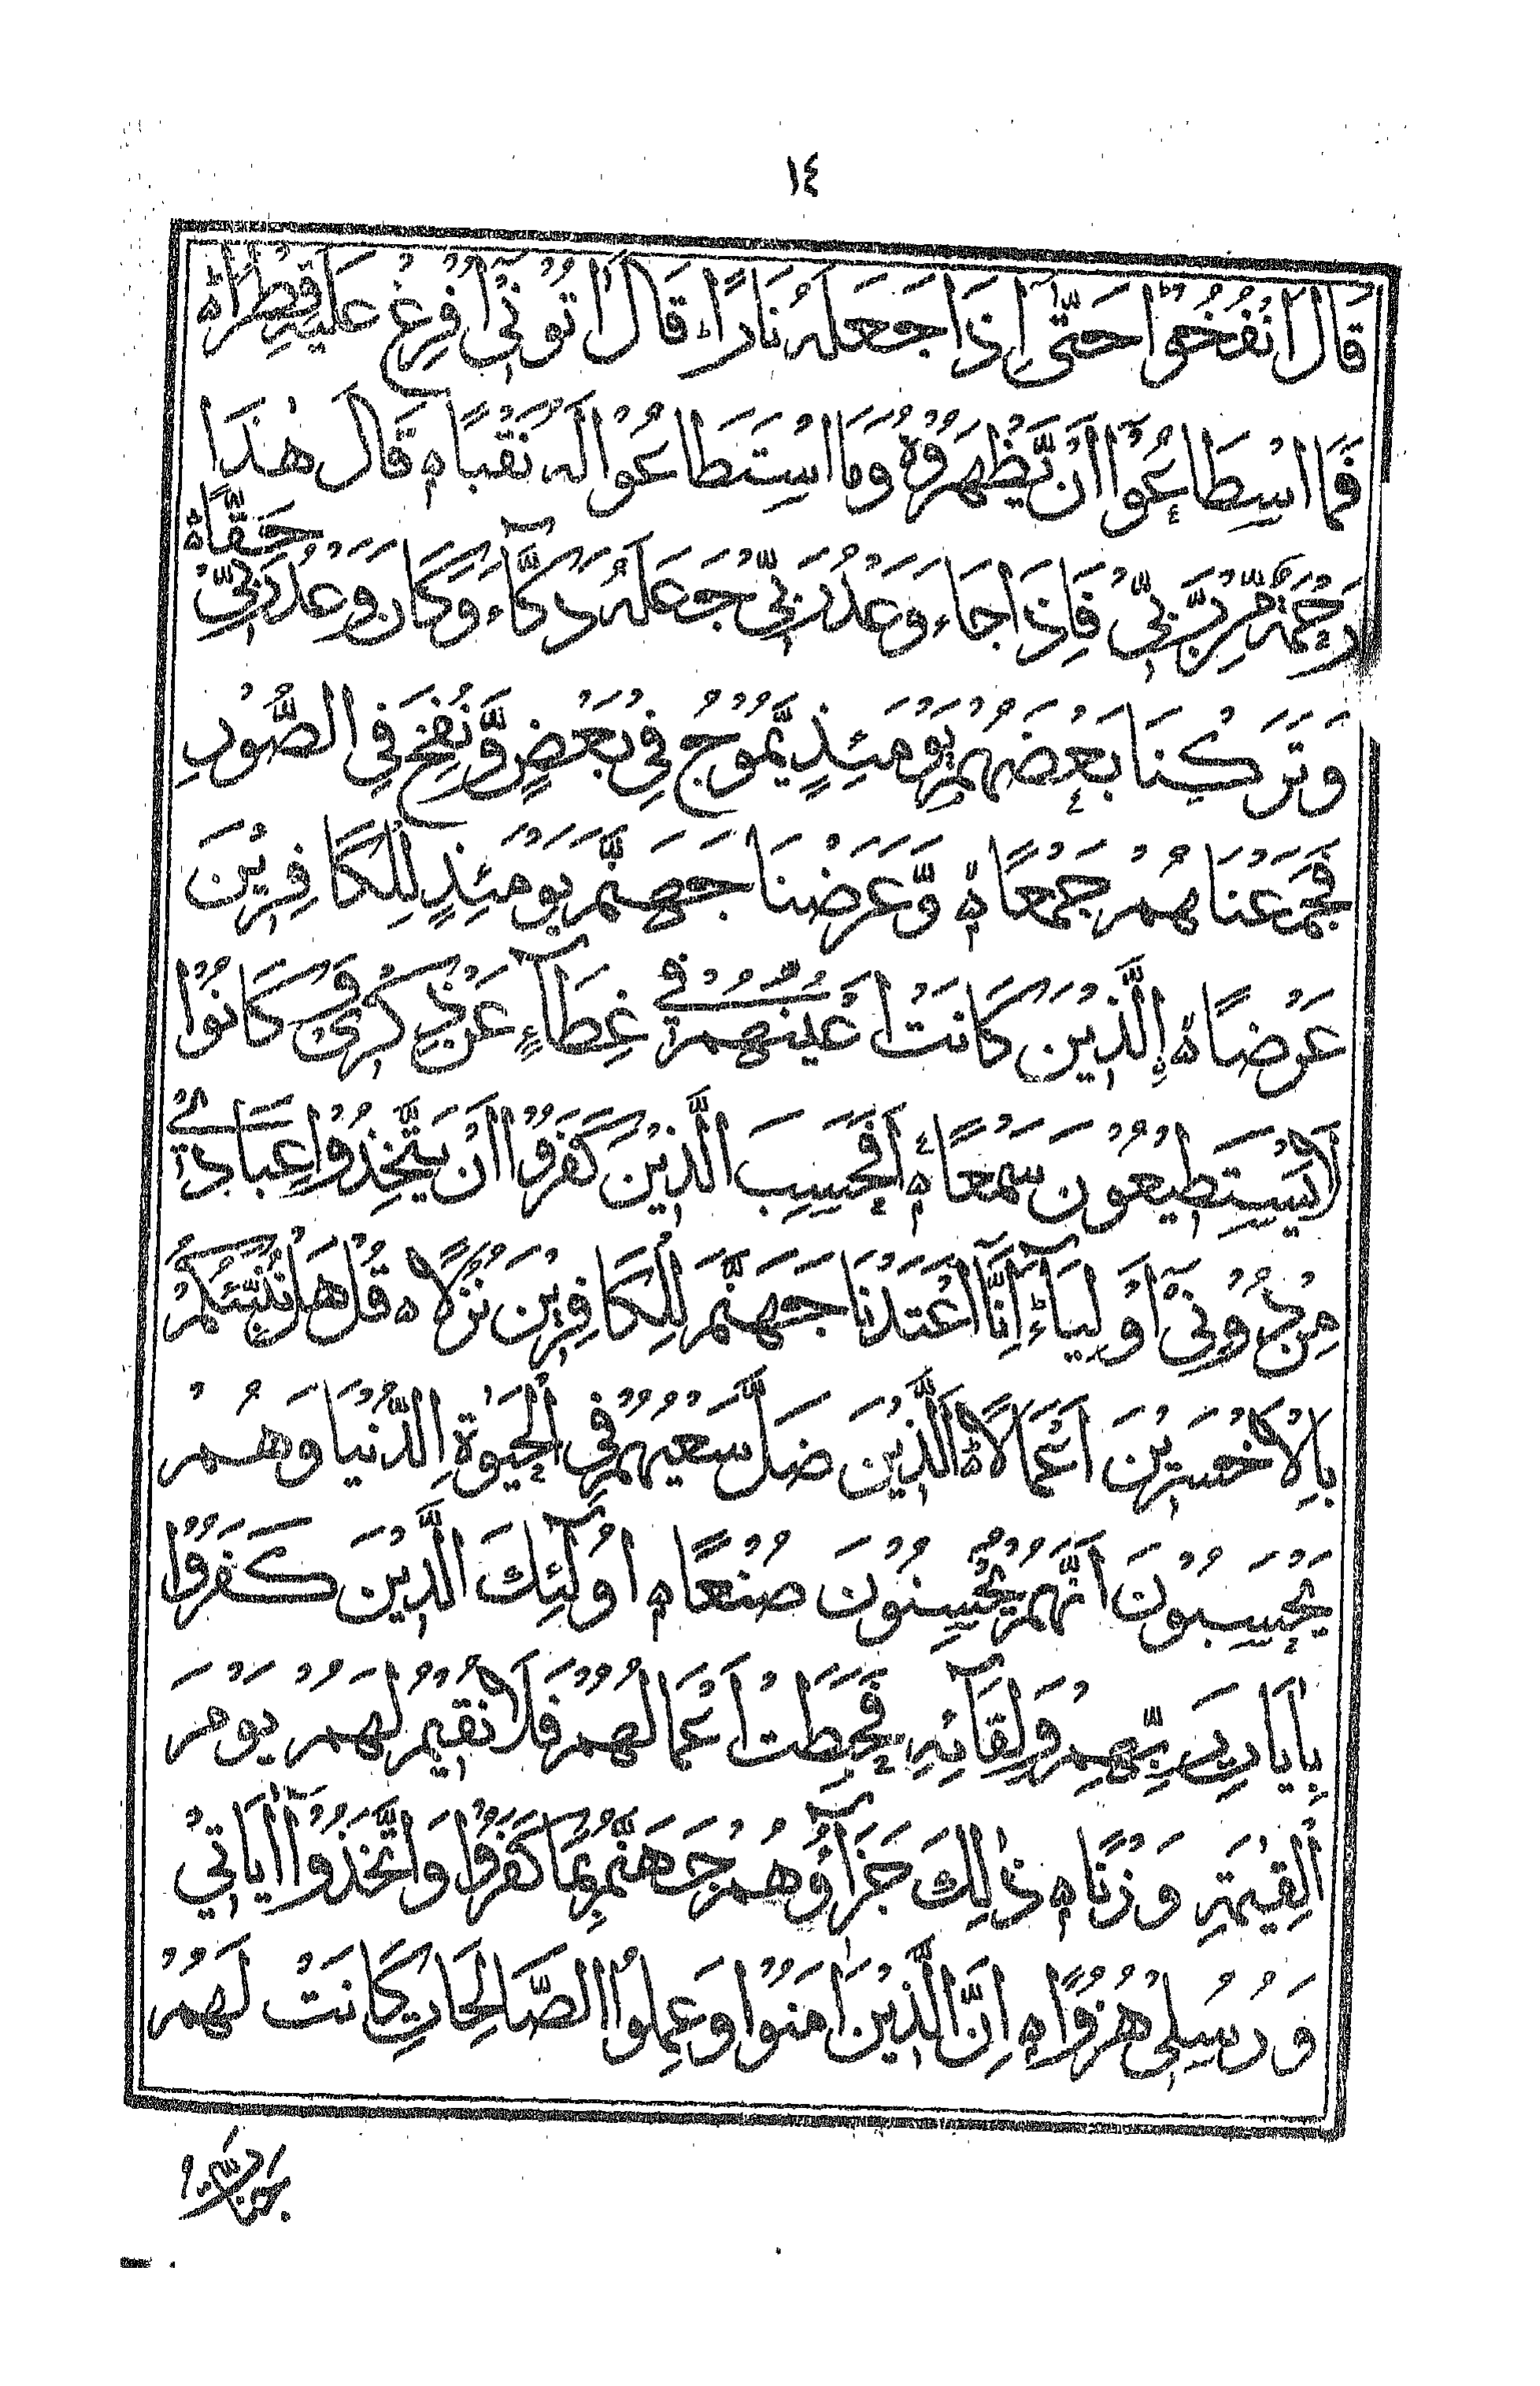 ١٤
قَالَ انْفُخُوْا حَتّٰٓى اِذَا جَعَلَهٗ نَارًا ۙ قَالَ اٰتُوْنِيْٓ اُفْرِغْ عَلَيْهِ قِطْرًا ۞
فَمَا اسْطَاعُوْٓا اَنْ يَّظْهَرُوْهُ وَمَا اسْتَطَاعُوْا لَهٗ نَقْبًا ۞ قَالَ هٰذَا
رَحْمَةٌ مِّنْ رَّبِّيْ فَاِذَا جَآءَ وَعْدُ رَبِّيْ جَعَلَهٗ دَكَّآءَ وَكَانَ وَعْدُ رَبِّيْ حَقًّا ۞
وَتَرَكْنَا بَعْضَهُمْ يَوْمَئِذٍ يَّمُوْجُ فِيْ بَعْضٍ وَّنُفِخَ فِي الصُّوْرِ
فَجَمَعْنَاهُمْ جَمْعًا ۞ وَّعَرَضْنَا جَهَنَّمَ يَوْمَئِذٍ لِلْكَافِرِيْنَ
عَرْضًا ۞ اِلَّذِيْنَ كَانَتْ اَعْيُنُهُمْ فِيْ غِطَآءٍ عَنْ ذِكْرِيْ وَكَانُوْا
لَا يَسْتَطِيْعُوْنَ سَمْعًا ۞ اَفَحَسِبَ الَّذِيْنَ كَفَرُوْا اَنْ يَّتَّخِذُوْا عِبَادِيْ
مِنْ دُوْنِيْٓ اَوْلِيَآءَ اِنَّآ اَعْتَدْنَا جَهَنَّمَ لِلْكَافِرِيْنَ نُزُلًا ۞ قُلْ هَلْ نُنَبِّئُكُمْ
بِالْاَخْسَرِيْنَ اَعْمَالًا ۞ اَلَّذِيْنَ ضَلَّ سَعْيُهُمْ فِي الْحَيٰوةِ الدُّنْيَا وَهُمْ
يَحْسَبُوْنَ اَنَّهُمْ يُحْسِنُوْنَ صُنْعًا ۞ اُولٰٓئِكَ الَّذِيْنَ كَفَرُوْا
بِاٰيَاتِ رَبِّهِمْ وَلِقَآئِهٖ فَحَبِطَتْ اَعْمَالُهُمْ فَلَا نُقِيْمُ لَهُمْ يَوْمَ
الْقِيٰمَةِ وَزْنًا ۞ ذٰلِكَ جَزَآؤُهُمْ جَهَنَّمُ بِمَا كَفَرُوْا وَاتَّخَذُوْٓا اٰيَاتِيْ
وَرُسُلِيْ هُزُوًا ۞ اِنَّ الَّذِيْنَ اٰمَنُوْا وَعَمِلُوا الصَّالِحَاتِ كَانَتْ لَهُمْ